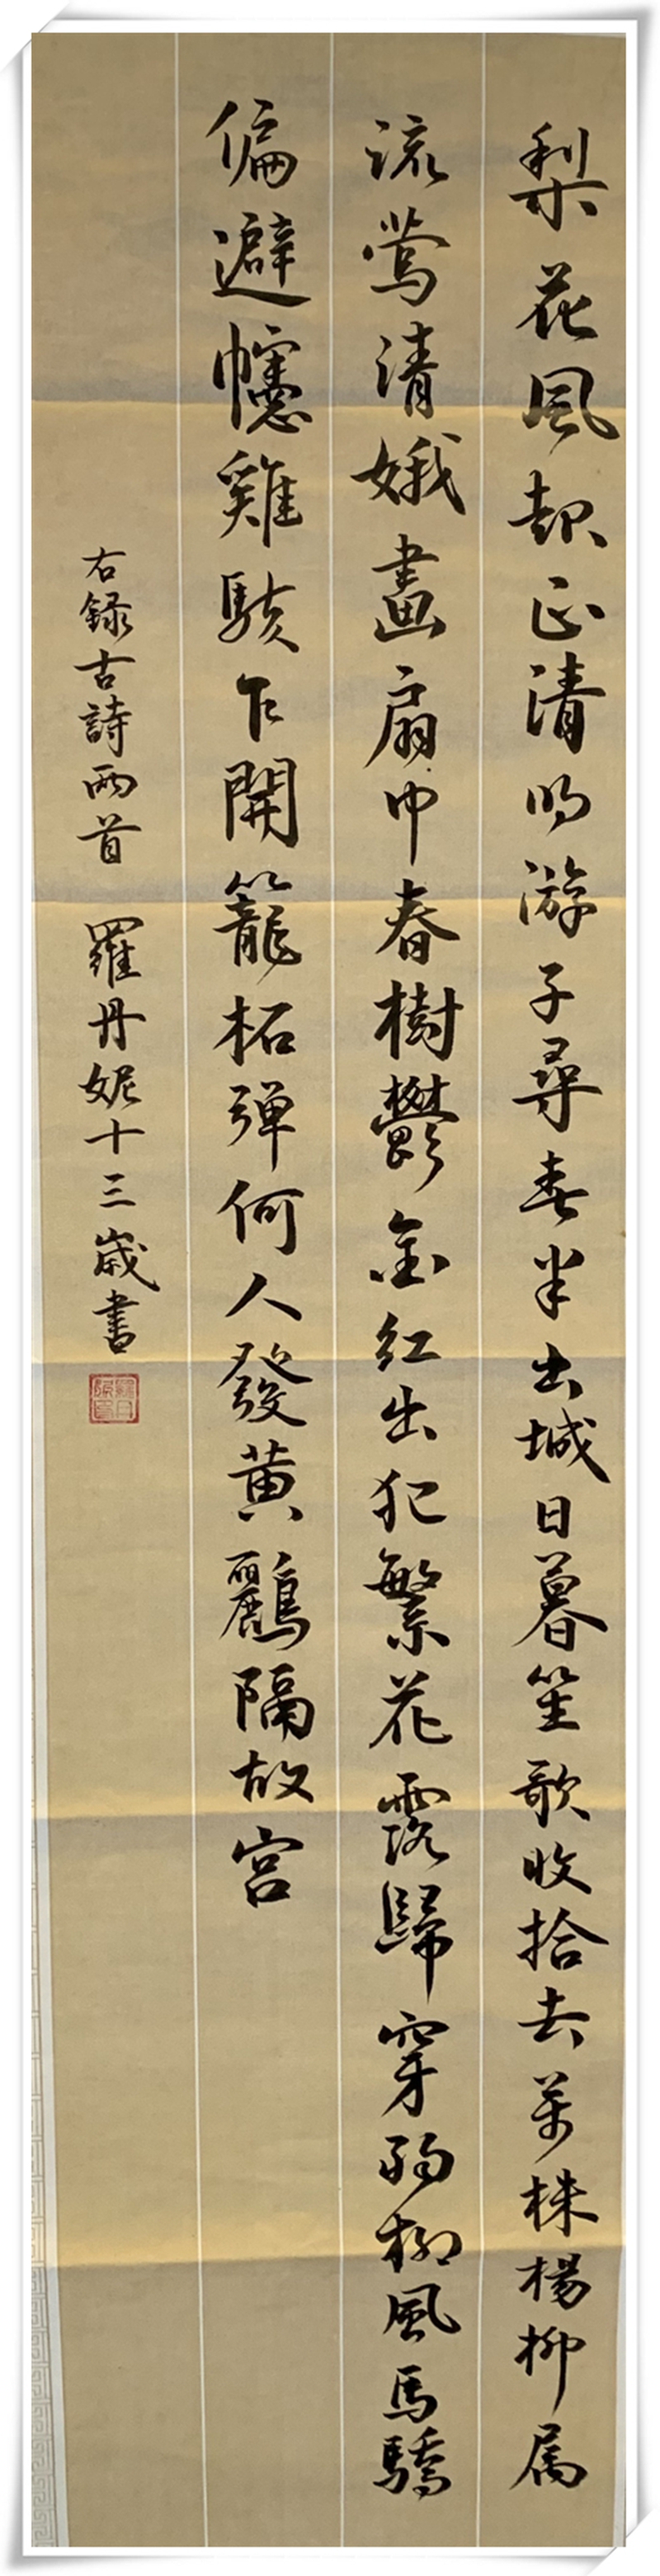 梨花風起正清明游子尋春半出城日暮笙歌收拾去萬株楊柳属
流莺清娥畫扇中春樹鬱金紅出犯繁花露歸穿弱柳風馬驕
偏避幰雞駭乍開籠柘弹何人發黄鸝隔故宮
右録古詩兩首 羅丹妮十三歲書